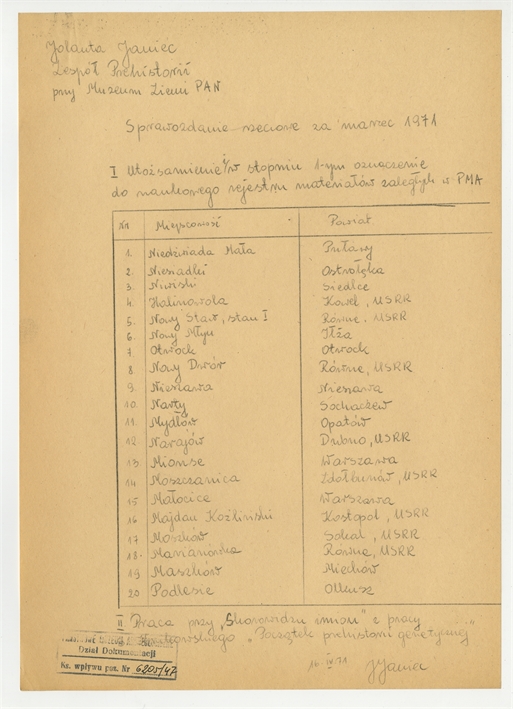 Jolanta Janiec
Zespół Prehistorii
przy Muzeum Ziemi PAN
Sprawozdanie rzeczowe za marzec 1971
I Utożsamienie i/w stopniu 1-ym oznaczenie
do naukowego rejestru materiałów zaległych w PMA
Nr Miejscowość Powiat
1. Niedźwiada Mała Puławy
2. Niesiadki Ostrołęka
3. Niwiski Siedlce
4. Halinowola Kowel, USRR
5. Nowy Staw, stan I Równe, USRR
6. Nowy Młyn Iłża
7. Otwock Otwock
8 Nowy Dwór Równe, USRR
9. Nieszawa Nieszawa
10. Narty Sochaczew
11. Mydłów Opatów
12 Narajów Dubno, USRR
13 Mionse Warszawa
14 Moszczanica Zdołbunów, USRR
15 Małocice Warszawa
16 Majdan Koźliński Kostopol, USRR
17 Moszków Sokal, USRR
18. Marianówka Równe, USRR
19 Maszków Miechów
20 Podlesie Olkusz
II Praca przy „Skorowidzu imion" z pracy
"Początek prehistorii genetycznej"
Dział Dokumentacji
Ks. wpływu poz. Nr 6205/47
16 IV 71 JJaniec